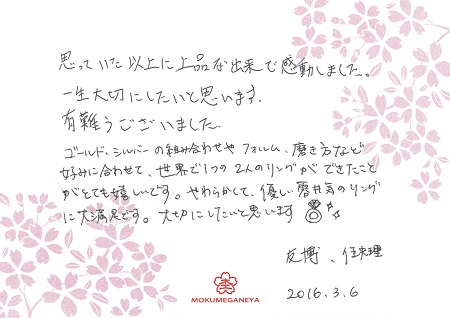 思っていた以上に上品な出来で感動しました。
一生大切にしたいと思います.
有難うございました.
ゴールド、シルバーの組み合わせや フォルム、磨き方など
好みに合わせて、世界で1つの 2人のリングができたこと
がとても嬉しいです。やわらかくて、優しい雰囲気のリング
に大満足です。大切にしたいと思います
友博、佳央理
MOKUMEGANEYA
2016.3.6